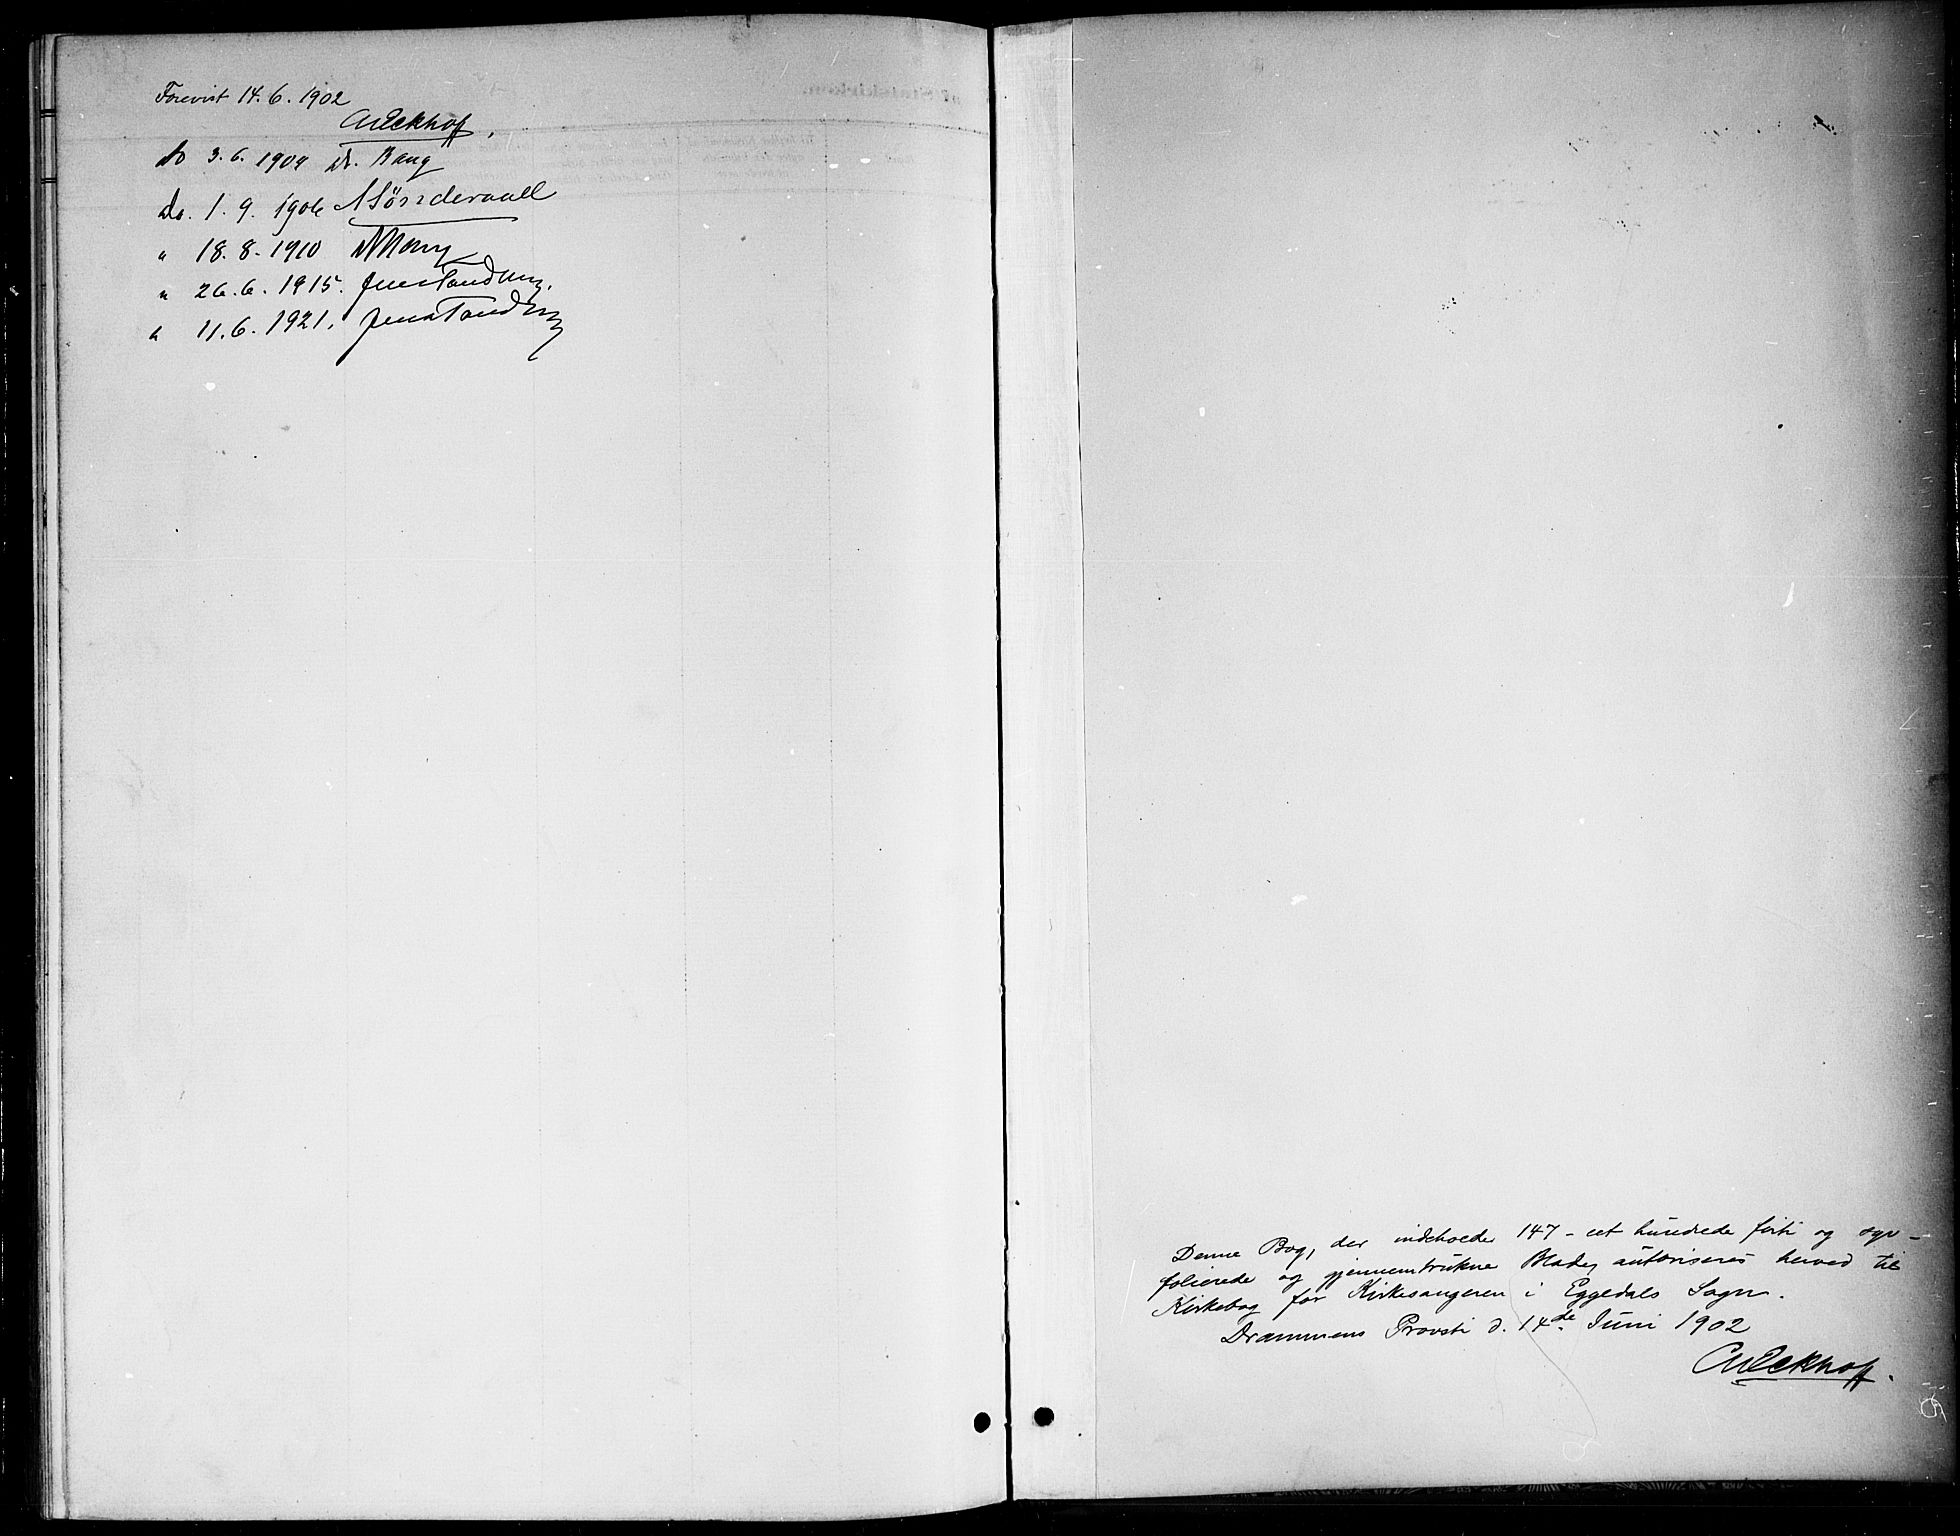 Forevist 14. 6. 1902
CMEckhoff.
do 3. 6. 1904 Dr. Bang
do. 1. 9. 1906 Sönderaall
" 18. 8. 1910 Bang
" 26. 6. 1915. Jens Tandberg.
" 11. 6. 1921. Jens Tandberg
Denne Bog, der indeholder 147 - eet hundrede firti og syv -
folierede og gjennemtrukne Blade, autoriseres herved til
Kirkebog for Kirkesangeren i Eggedals Sogn.
Drammens Provsti d. 14de Juni 1902
CMEckhoff.